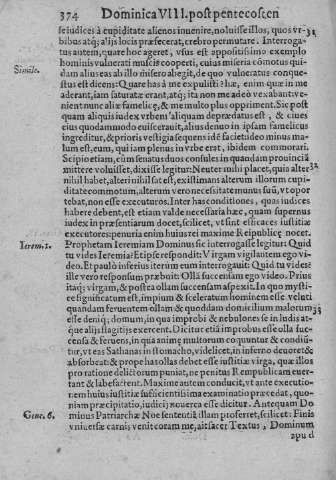 374 Dominica VIII. post pentecosten
se iudices à cupiditate alienos inuenire, noluisse illos, quos vr- 31
bibus atq; alijs locis præfecerat, crebro permutare. Interroga-
tus autem, quare hoc ageret, vsus est appositissimo exemplo
Simile. hominis vulnerati muscis cooperti, cuius miseria cōmotus qui-
dam alius eas ab illo misero abegit, de quo vulneratus conque-
stus est dicens: Quare has à me expulisti? hæ, enim quæ in me
aderant, iam saturatæ erant, atq; ita non me adeo vexabant: ve-
nient nunc aliæ famelicę, & me multo plus oppriment. Sic post
quam aliquis iudex vrbem aliquam deprædatus est, & ciues
eius quodammodo euiscerauit, alius denuo in ipsam famelicus
ingreditur, & prioris vestigia sequens idē facietideo minus ma-
lum est, eum, qui iam plenus in vrbe erat, ibidem commorari.
Scipio etiam, cūm senatus duos consules in quandam prouinciā
mittere voluisset, dixisse legitur: Neuter mihi placet, quia alter 32
nihil habet, alteri nihil satest, existimans alterum illorum cupi-
ditate commotum, alterum vero necessitate munus suū, vt opor
tebat, non esse executuros. Inter has conditiones, quas iudices
habere debent, est etiam valde necessaria hæc, quam supernus
iudex in præsentiarum docet, scilicet, vt sint efficaces iustitiæ
executores: penuria enim huius rei maxime Reipublicę nocet.
Ierem. 1. Prophetam Ieremiam Dominus sic interrogasse legitur: Quid
tu vides Ieremia? Et ipse respondit: Virgam vigilantem ego vi-
deo. Et paulò inferius iterum eum interrogauit: Quid tu vides?
ille vero responsum præbuit: Ollā succensam ego video. Prius
itaq; virgam, & postea ollam succensam aspexit. In quo mysti-
ce significatum est, impium & sceleratum hominem esse veluti
quandam feruentem ollam & quoddam domicilium malorum 33
esse deniq; domum, in qua improbi & nebulones se in ludis at-
que alijs flagitijs exercent. Dicitur etiā improbus esse olla suc-
censa & feruens, in qua animę multorum coquuntur & condiū-
tur, vt eas Sathanas in stomacho, videlicet, in inferno deuoret &
absorbeat: & prope has ollas debet esse iustitiæ virga, quæ illos
pro qualitate delictorum puniat, ne penitus Rempublicam euer-
tant & labefactent. Maxime autem conducit, vt ante executio-
nem huius iustitiæ sufficientissima examinatio præcedat, quo-
niam præcipitatio, iudicij nouerca esse dicitur. Antequam Do
Gene. 6. minus Patriarchæ Noe sententiā illam proferret, scilicet: Finis
vniuersæ carnis venit coram me, ait sacer Textus, Dominum
apud